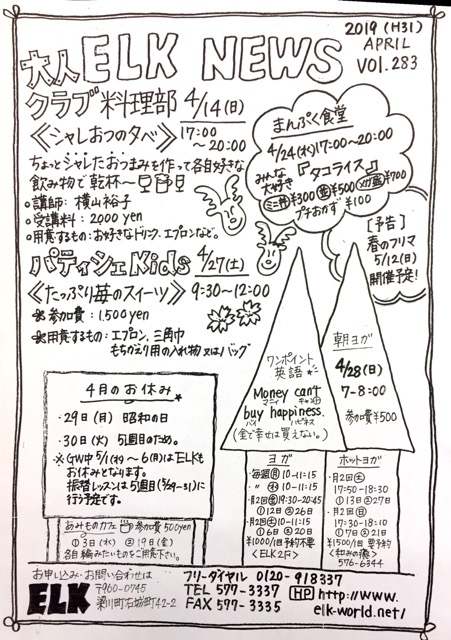 2019 (H31)
APRIL
VOl. 283
大人 ELK NEWS
クラブ料理部 4/14(日)
《シャレおつの夕べ》 17:00
～20:00
ちょっとシャレたおつまみを作って各自好きな
飲み物で乾杯～
○講師: 横山裕子
○受講料: 2,000 yen
○用意するもの: お好きなドリンク、エプロンなど。
まんぷく食堂
4/24(水)17:00～20:00
みんな大好き『タコライス』
ミニ丼¥300 普¥500 メガ盛¥700
プチおかず ¥100
[予告]
春のフリマ
5/12(日)
開催予定!
パティシェKids 4/27(土)
《たっぷり苺のスイーツ》 9:30～12:00
参加費: 1,500yen
用意するもの: エプロン、三角巾
もちかえり用の入れ物 又はバッグ
4月のお休み
・29日(月) 昭和の日
・30日(火) 5週目のため。
※GW中 5/1(水)～6(月)はELKも
お休みとなります。
振替レッスンは5週目(5/29-31)に
行う予定です。
あみものカフェ 参加費 500yen
①3日(水) ②19日(金)
各自編みたいものをご用意下さい。
ワンポイント
英語
Money can't
マニィ キャント
buy happiness.
バイ ハピネス
(金で幸せは買えない。)
朝ヨガ
4/28(日)
7-8:00
参加費¥500
ヨガ
・毎週(月)10-11:15
・〃(水)10-11:15
・月2回(金)19:30-20:45
①12日②26日
・月2回(土)10-11:15
①6日②20日
¥1000/1回予約不要
<ELK2F>
ホットヨガ
・月2回(土)
17:50-18:30
①13日②27日
・月2回(日)
17:30-18:10
①7日②21日
¥1500/1回要予約
<和みの癒>
576-6344
お申し込み・お問い合わせは
ELK
〒960-0745
梁川町右城町42-2
フリーダイヤル 0120-918337
TEL 577-3337
FAX 577-3335
HP http://www.
elk-world.net/